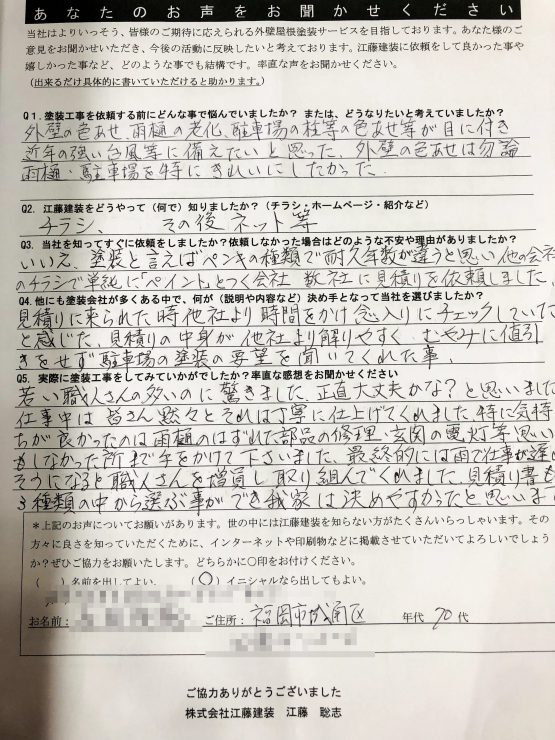 あなたのお声をお聞かせください
当社はよりいっそう、皆様のご期待に応えられる外壁屋根塗装サービスを目指しております。あなた様のご
意見をお聞かせいただき、今後の活動に反映したいと考えております。江藤建装に依頼をして良かった事や
嬉しかった事など、どのような事でも結構です。率直な声をお聞かせください。
（出来るだけ具体的に書いていただけると助かります。）
Q1.塗装工事を依頼する前にどんな事で悩んでいましたか？ または、どうなりたいと考えていましたか？
外壁の色あせ、雨樋の老化、駐車場の柱等の色あせ等が目に付き
近年の強い台風等に備えたいと思った、外壁の色あせは勿論
雨樋・駐車場を特にきれいにしたかった。
Q2. 江藤建装をどうやって（何で）知りましたか？（チラシ・ホームページ・紹介など）
チラシ、 その後 ネット等
Q3. 当社を知ってすぐに依頼をしましたか？依頼しなかった場合はどのような不安や理由がありましたか？
いいえ、塗装と言えばペンキの種類で耐久年数が違うと思い他の会社
のチラシで単純に「ペイント」とつく会社 数社に見積りを依頼しました、
Q4.他にも塗装会社が多くある中で、何が（説明や内容など）決め手となって当社を選びましたか？
見積りに来られた時他社より時間をかけ念入りにチェックしていた
と感じた、見積りの中身が他社より解りやすく、むやみに値引
きをせず駐車場の塗装の要望を聞いてくれた事、
Q5. 実際に塗装工事をしてみていかがでしたか？率直な感想をお聞かせください
若い職人さんの多いのに驚きました、正直大丈夫かな？と思いました
仕事中は皆さん黙々とそれは丁寧に仕上げてくれました、特に気持
ちが良かったのは雨樋のはずれた部品の修理・玄関の電灯等思い
もしなかった所まで手をかけて下さいました、最終的には雨で仕事が遅れ
そうになると職人さんを増員し取り組んでくれました、見積り書も
3種類の中から選ぶ事ができ我家は決めやすかったと思いま
＊上記のお声についてお願いがあります。世の中には江藤建装を知らない方がたくさんいらっしゃいます。その
方々に良さを知っていただくために、インターネットや印刷物などに掲載させていただいてよろしいでしょう
か？ぜひご協力をお願いします。どちらかに○印をお付けください。
（ ）名前を出してよい。 （○）イニシャルなら出してもよい。
お名前： ご住所：福岡市城南区 年代 70代
ご協力ありがとうございました
株式会社江藤建装 江藤 聡志